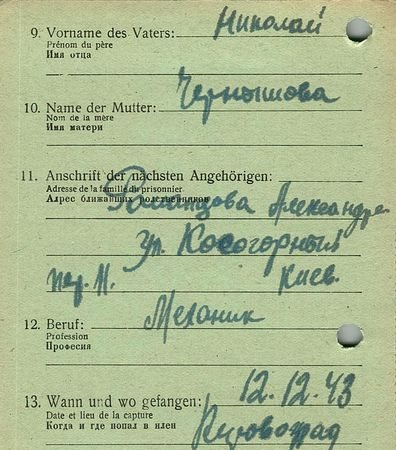 9. Vorname des Vaters: Николай
Prénom du père
Имя отца
Чернышова
10. Name der Mutter:
Nom de la mère
Имя матери
11. Anschrift der nächsten Angehörigen:
Adresse de la famille du prisonnier
Адрес ближайших родственников
Александре
ул. Косогорный
пер. Киев.
12. Beruf: Механик
Profession
Професия
12.12.43
13. Wann und wo gefangen:
Date et lieu de la capture
Когда и где попал в плен
Кировоград